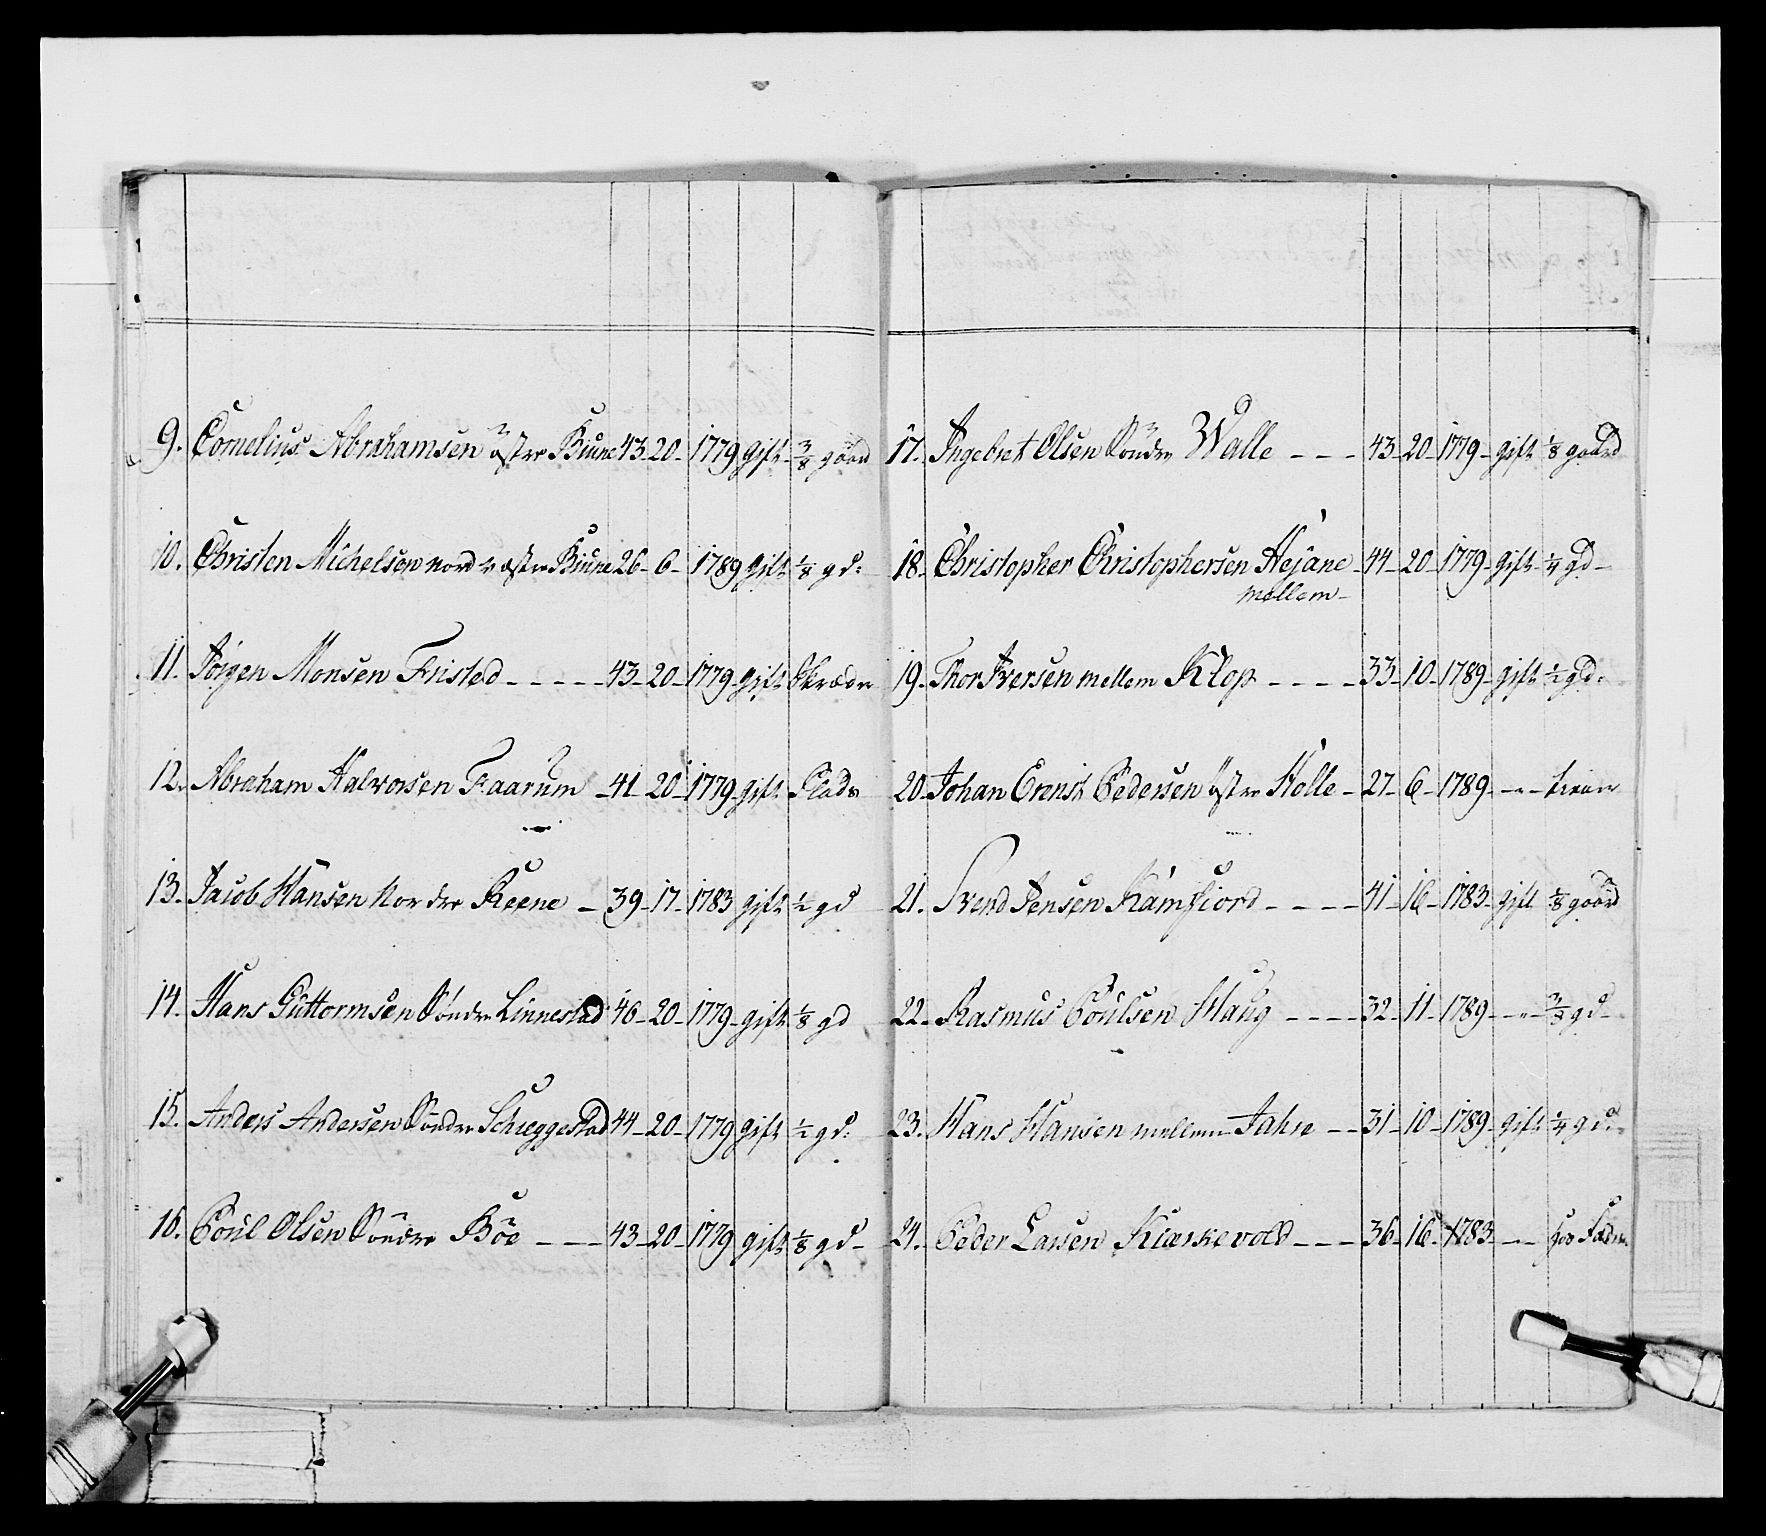 9. Cornelius Abrahamsen östre Kiune 43 - 20 - 1779 gift 3/8 gaard
10. Christen Michelsen nord væstre Kiune 26 - 6 - 1789 gift 1/8 gd:
11. Jörgen Monsen Fristed - - - - - 43 - 20 - 1779 - gift Skrædr
12. Abraham Halvorsen Faarum - 41 - 20 - 1779 - gift Plads
13. Jacob Hansen Nordre Reene - 39 - 17 - 1783 gift 1/2 gd
14. Hans Guttormsen Söndre Linnestad 46 - 20 - 1779 - gift 1/8 gd
15. Anders Andersen Söndre Schieggestad 44 - 20 - 1779 gift 1/2 gd:
16. Poul Olsen Söndre Böe - - - 43 - 20 - 1779 gift 1/8 gd -
17. Ingebret Olsen Söndre Walle - - - 43 - 20 - 1779 - gift 1/8 gaard
18. Christopher Christophersen Hejane - 44 - 20 - 1779 - gift - 1/4 gd -
mellem -
19. Thor Iversen mellem Klop - - - - 33 - 10 - 1789 - gift 1/2 gd:
20. Johan Ernst Pedersen östre Holle - 27 - 6 - 1789 - - " -
21. Svend Jensen Kamfiord - - - - 41 - 16 - 1783 - gift 1/8 gaard
22. Rasmus Poulsen Haug - - - - 32 - 11 - 1789 - - " - 3/8 gd -
23. Hans Hansen mellem Jahre - - 31 - 10 - 1789 - gift 1/4 gd:
24. Peder Larsen Klæskevold - - - 36 - 16 - 1783 - - " - hos Fadr